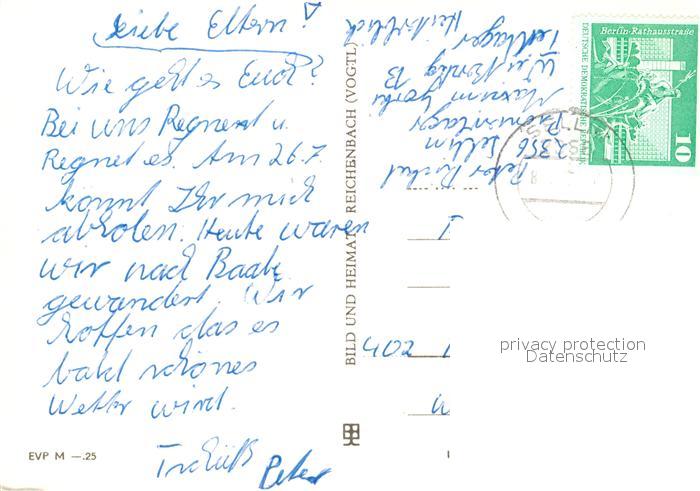 Liebe Eltern!
Wie geht es Euch?
Bei uns Regnent u.
Regnet es. Am 26.7
könnt Ihr mich
abholen. Heute waren
wir nach Baabe
gewandert. Wir
hoffen das es
bald schönes
Wetter wird.
Tschüß Peter
EVP M —.25
BILD UND HEIMAT REICHENBACH (VOGTL)
Peter
2356 Sellin
Pionierlager
Maxim Gorki
Zeltlager
402
Berlin-Rathausstraße
DEUTSCHE DEMOKRATISCHE REPUBLIK
10
privacy protection
Datenschutz